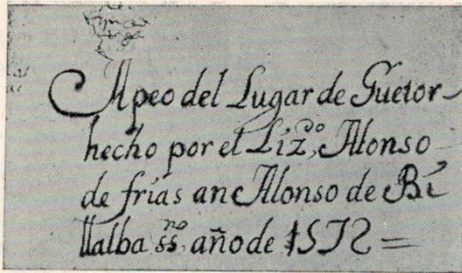 Apeo del Lugar de Guetor
hecho por el Lizº, Alonso
de frias an Alonso de Bi
llalba ssno. año de 1572 =